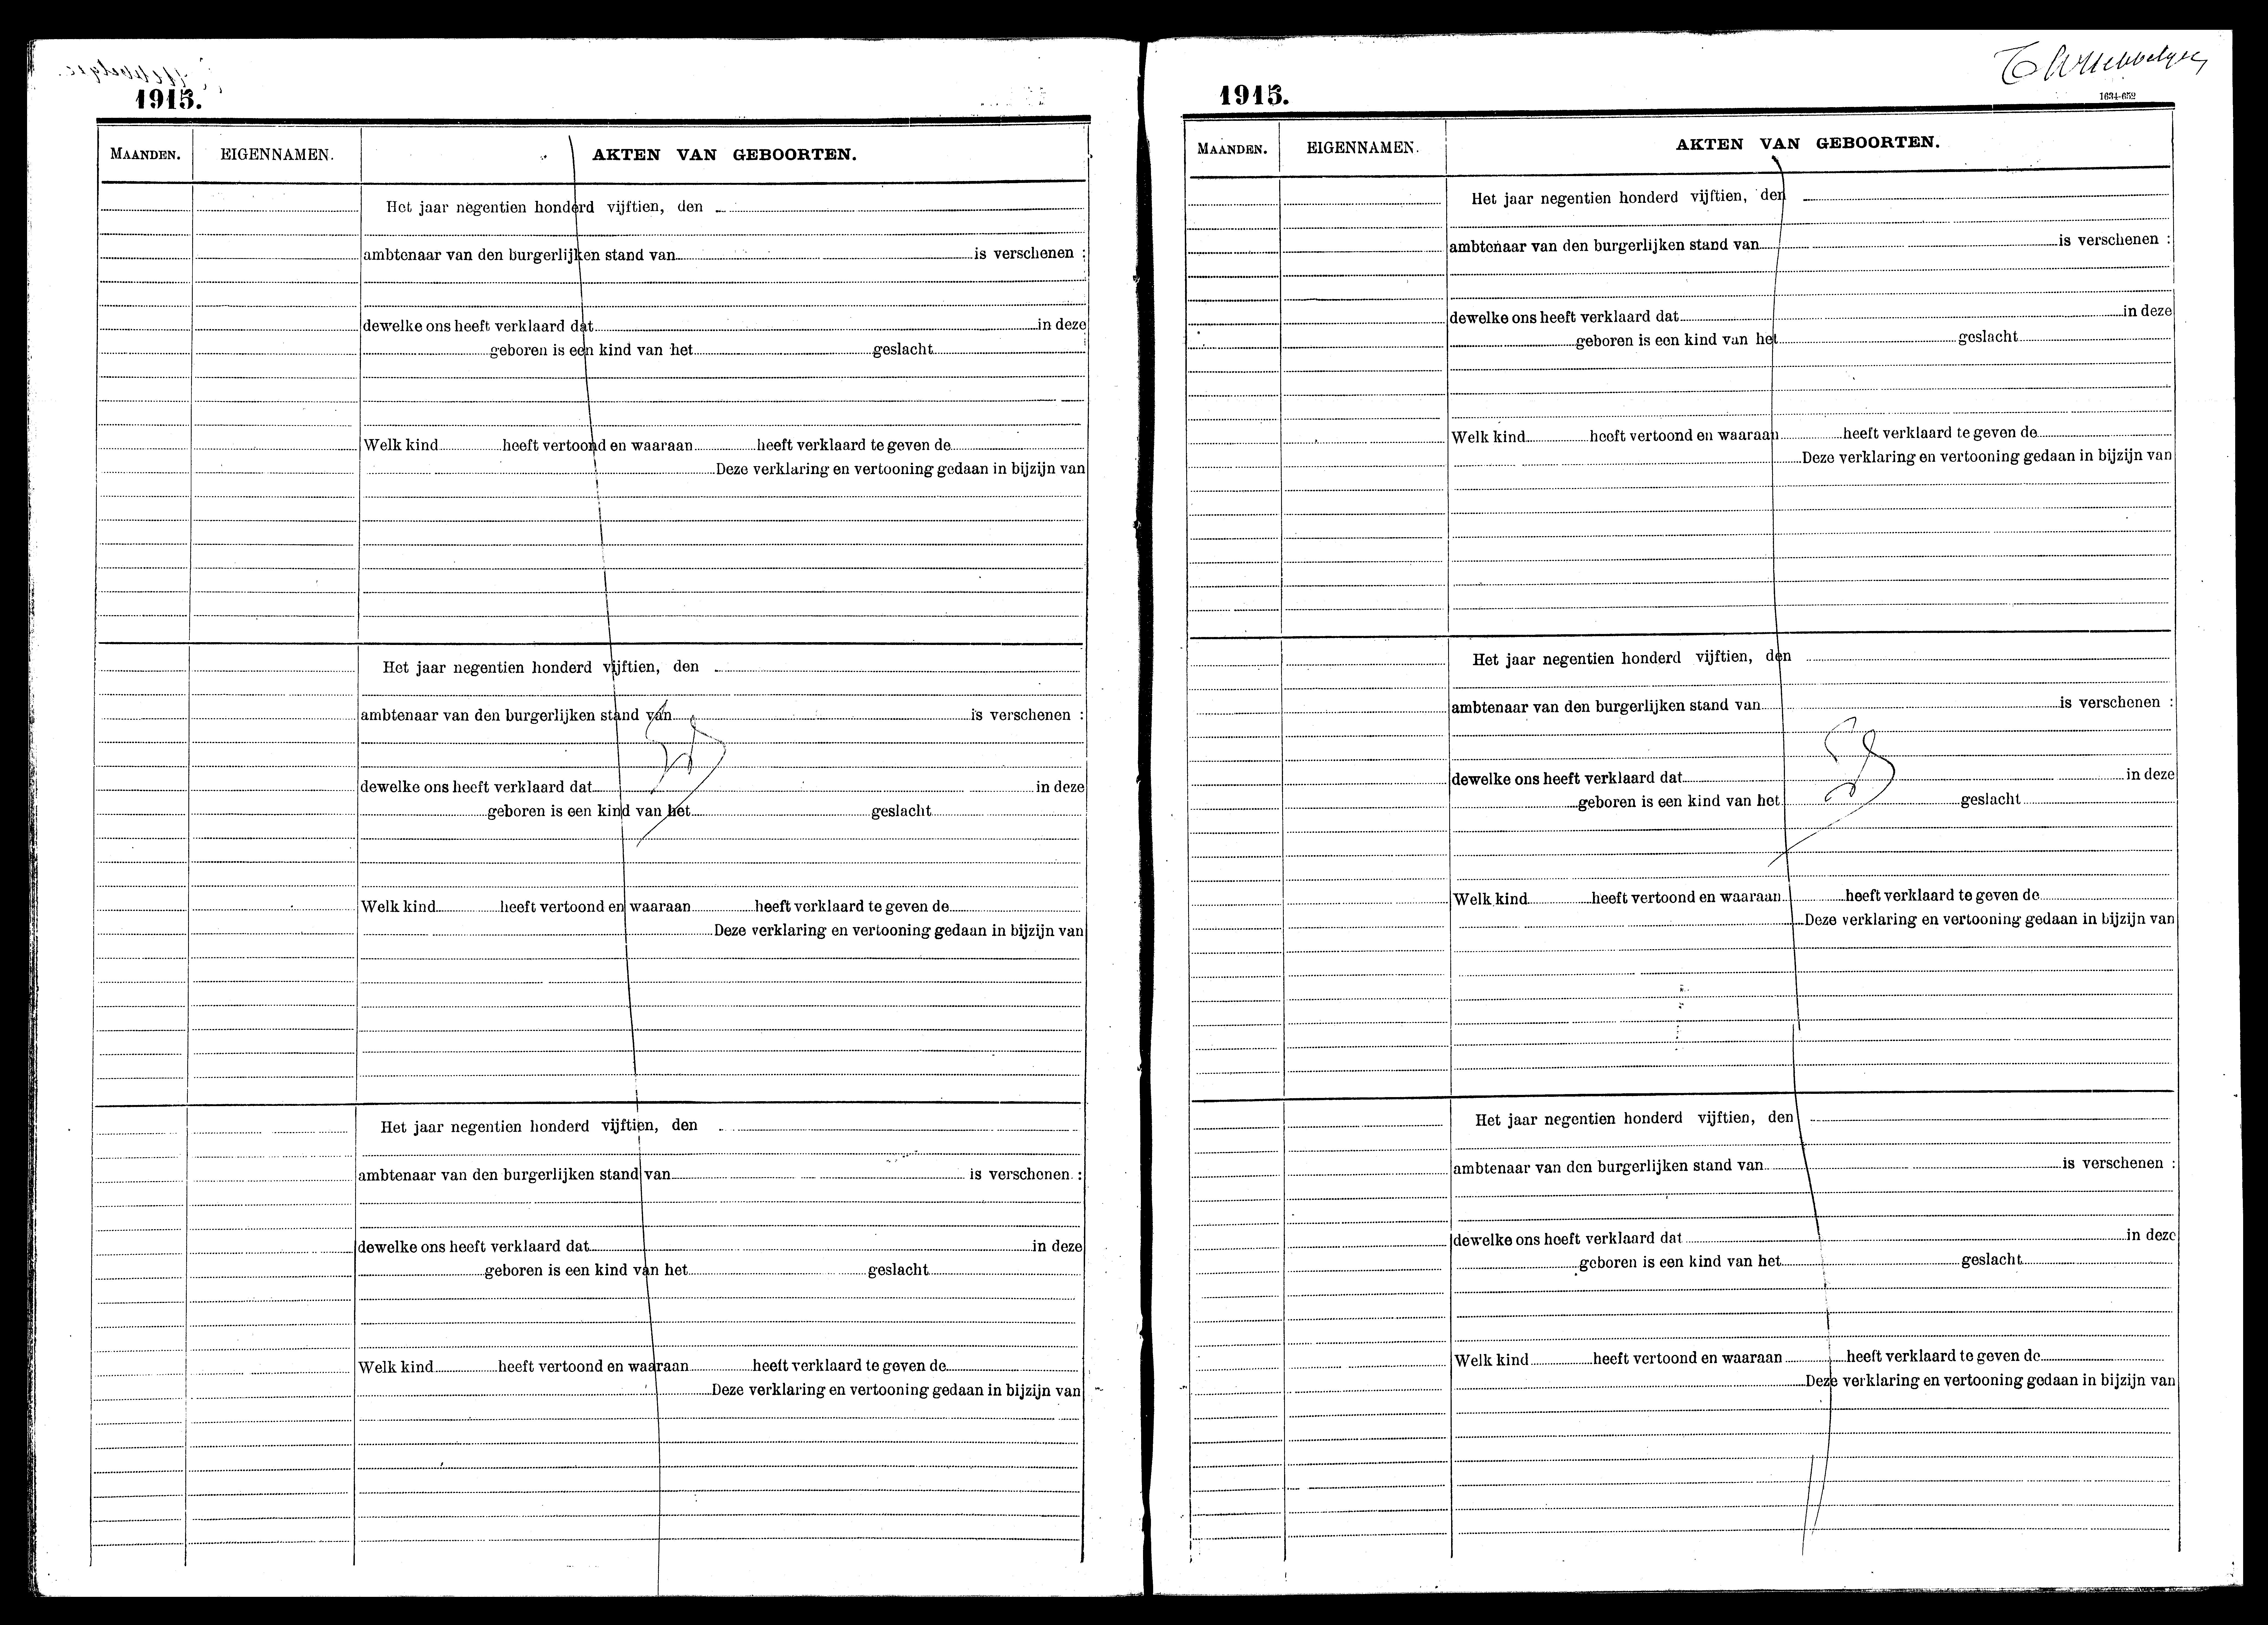 1915.
MAANDEN. EIGENNAMEN. AKTEN VAN GEBOORTEN.
Het jaar negentien honderd vijftien, den
ambtenaar van den burgerlijken stand van is verschenen :
dewelke ons heeft verklaard dat in deze
geboren is een kind van het geslacht
Welk kind heeft vertoond en waaraan heeft verklaard te geven de
Deze verklaring en vertooning gedaan in bijzijn van
Het jaar negentien honderd vijftien, den
ambtenaar van den burgerlijken stand van is verschenen :
dewelke ons heeft verklaard dat in deze
geboren is een kind van het geslacht
Welk kind heeft vertoond en waaraan heeft verklaard te geven de
Deze verklaring en vertooning gedaan in bijzijn van
Het jaar negentien honderd vijftien, den
ambtenaar van den burgerlijken stand van is verschenen :
dewelke ons heeft verklaard dat in deze
geboren is een kind van het geslacht
Welk kind heeft vertoond en waaraan heeft verklaard te geven de
Deze verklaring en vertooning gedaan in bijzijn van
1915.
1634-652
MAANDEN. EIGENNAMEN. AKTEN VAN GEBOORTEN.
Het jaar negentien honderd vijftien, den
ambtenaar van den burgerlijken stand van is verschenen :
dewelke ons heeft verklaard dat in deze
geboren is een kind van het geslacht
Welk kind heeft vertoond en waaraan heeft verklaard te geven de
Deze verklaring en vertooning gedaan in bijzijn van
Het jaar negentien honderd vijftien, den
ambtenaar van den burgerlijken stand van is verschenen :
dewelke ons heeft verklaard dat in deze
geboren is een kind van het geslacht
Welk kind heeft vertoond en waaraan heeft verklaard te geven de
Deze verklaring en vertooning gedaan in bijzijn van
Het jaar negentien honderd vijftien, den
ambtenaar van den burgerlijken stand van is verschenen :
dewelke ons heeft verklaard dat in deze
geboren is een kind van het geslacht
Welk kind heeft vertoond en waaraan heeft verklaard te geven de
Deze verklaring en vertooning gedaan in bijzijn van